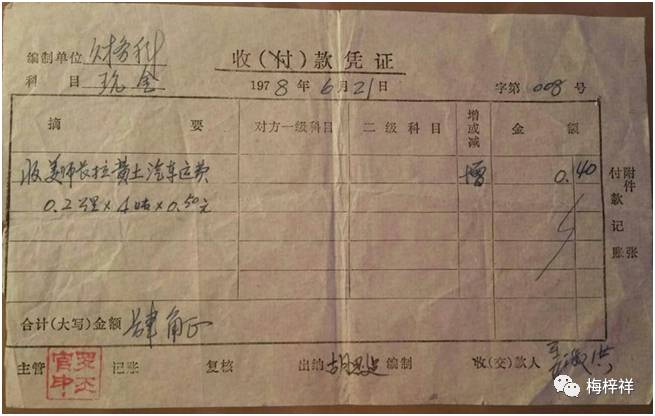 编制单位 财务科
收(付)款凭证
科 目 现金
1978年6月21日
字第 008 号
摘 要 对方一级科目 二级科目 增或减 金 额
收姜师长拉黄土汽车运费 增 0.40
0.2公里×4吨×0.50元
附件 张
付款记账
合计(大写)金额 肆角正
主管 记账 复核 出纳 编制 收(交)款人
梅梓祥